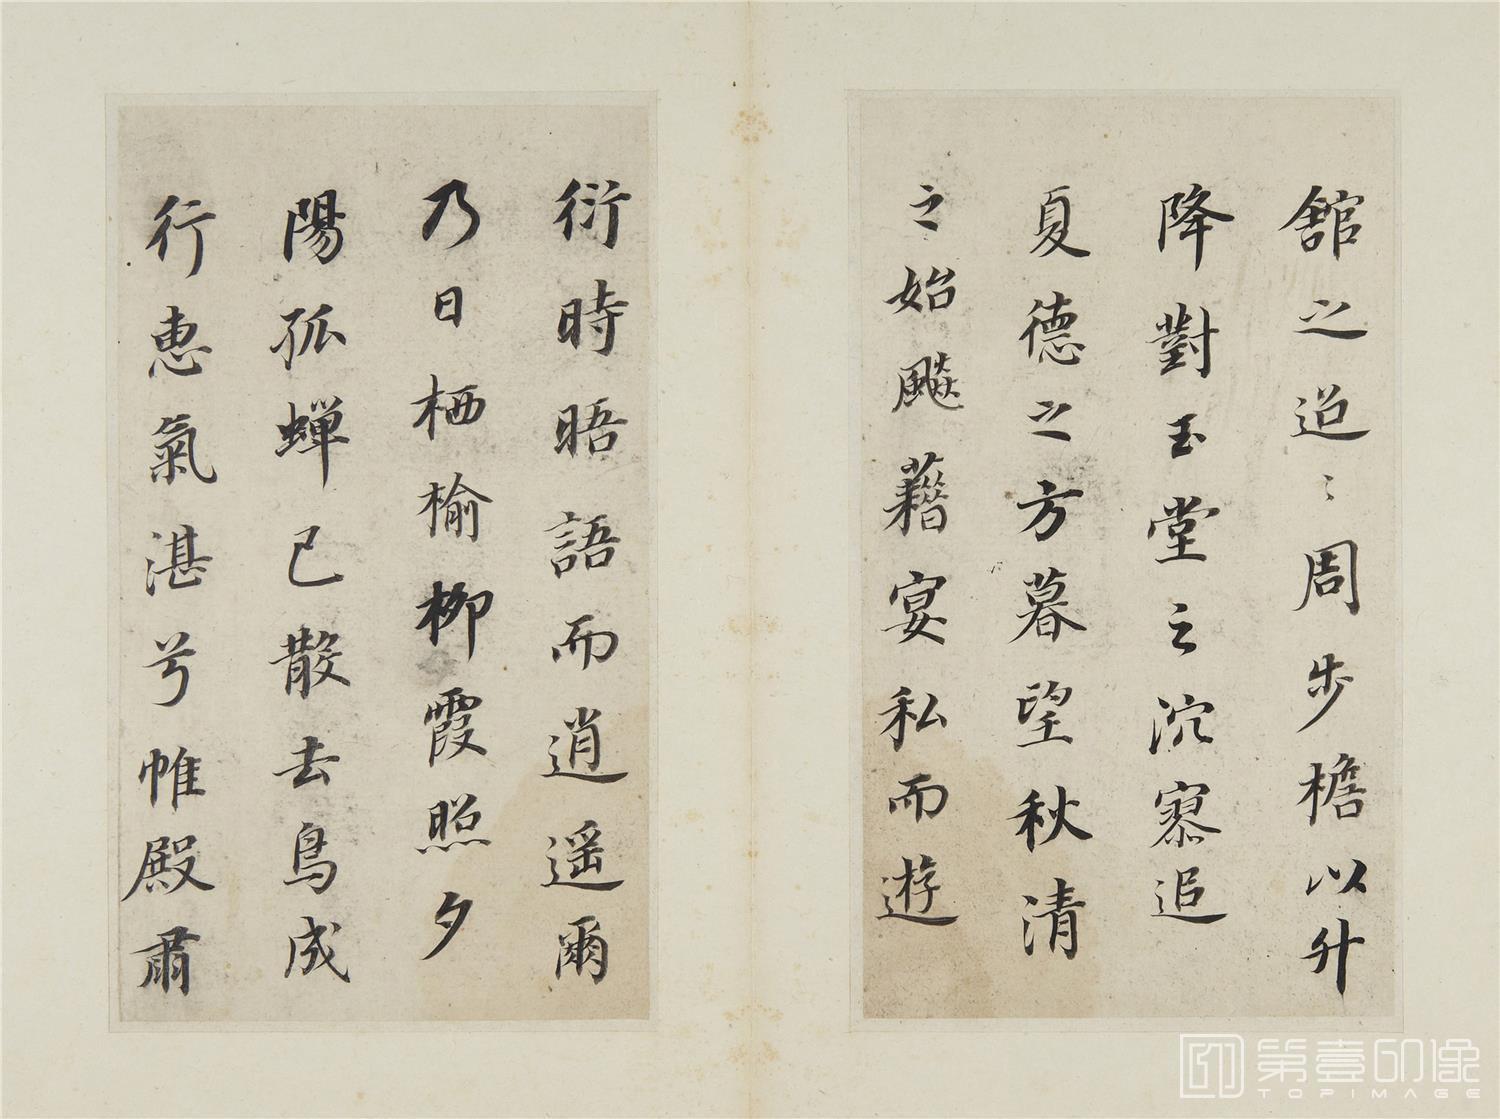 舘之迢〻周步檐以升
降對玉堂之沉寥追
夏德之方暮望秋清
之始飈藉宴私而遊
衍時晤語而逍遥爾
乃日栖榆柳霞照夕
陽孤蟬已散去鳥成
行惠氣湛兮帷殿肅
第壹印像
TOPIMAGE